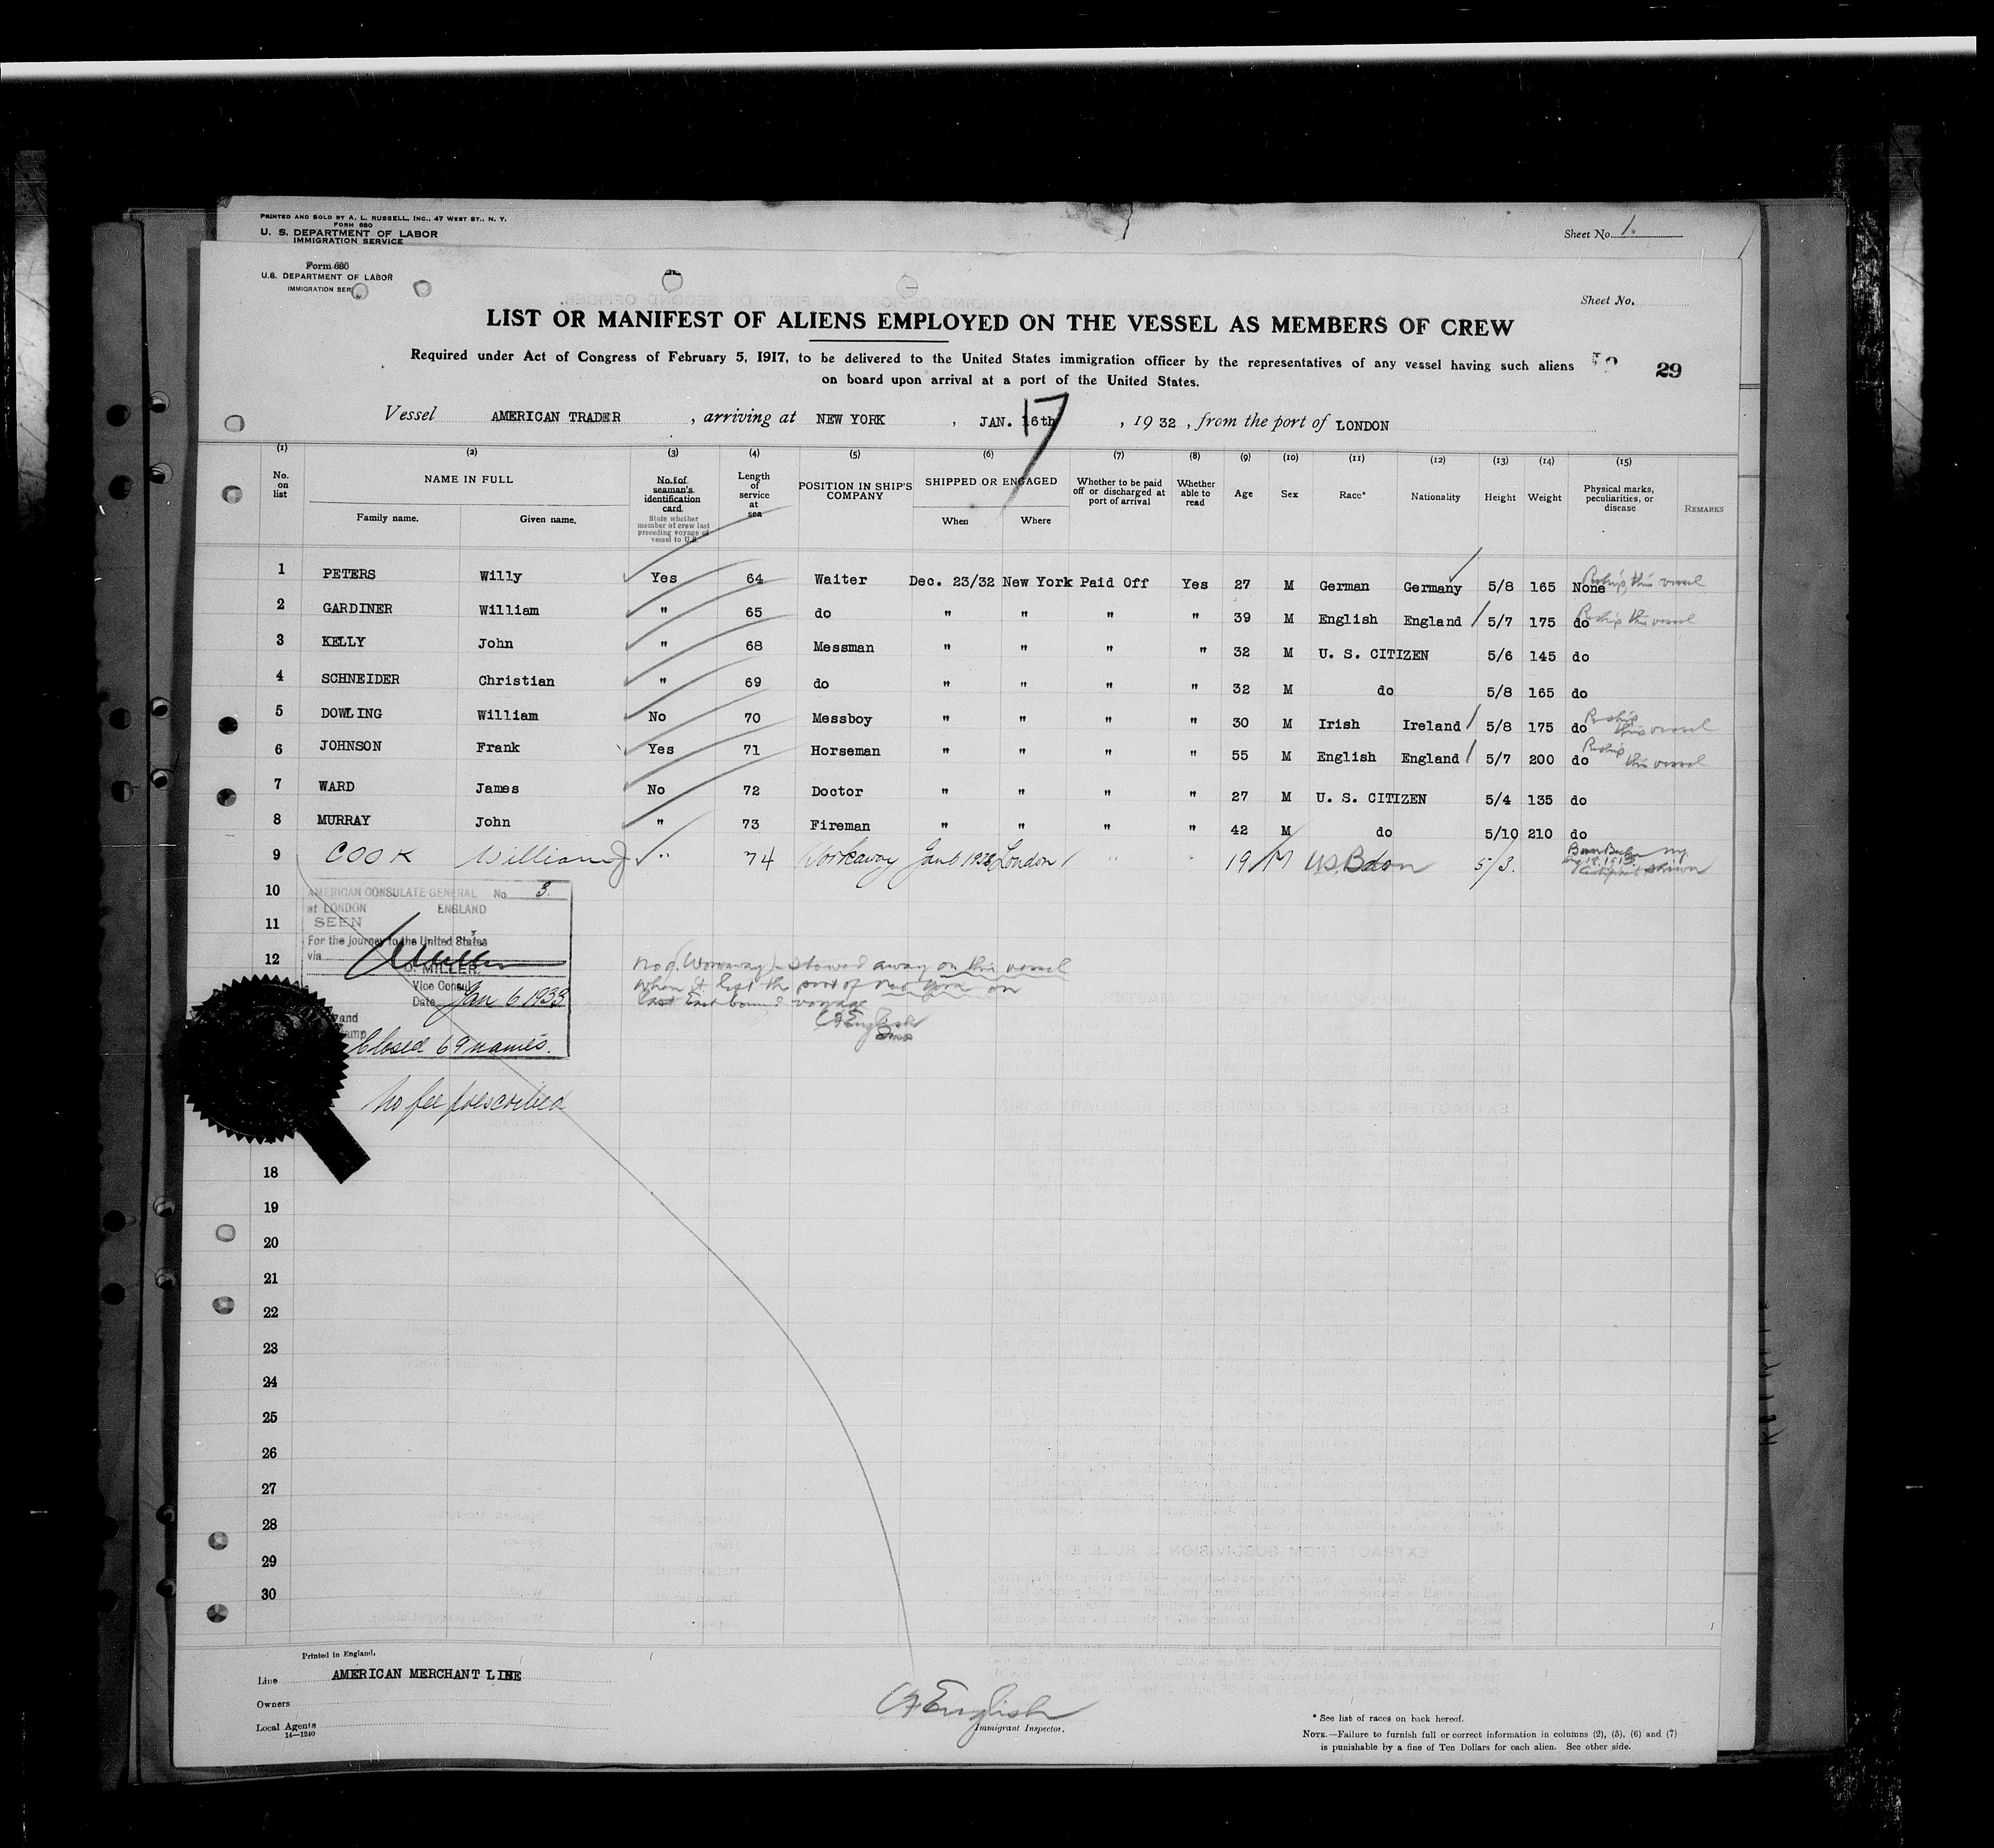 PRINTED AND SOLD BY A. L. RUSSELL, INC., 47 WEST ST., N. Y.
FORM 680
U. S. DEPARTMENT OF LABOR
IMMIGRATION SERVICE
Sheet No. 1.
Form 680
U.S. DEPARTMENT OF LABOR
IMMIGRATION SER
Sheet No.
LIST OR MANIFEST OF ALIENS EMPLOYED ON THE VESSEL AS MEMBERS OF CREW
Required under Act of Congress of February 5, 1917, to be delivered to the United States immigration officer by the representatives of any vessel having such aliens
on board upon arrival at a port of the United States.
29
Vessel AMERICAN TRADER, arriving at NEW YORK, JAN. 16th 17, 1932, from the port of LONDON
(1) (2) (3) (4) (5) (6) (7) (8) (9) (10) (11) (12) (13) (14) (15)
No. on list
NAME IN FULL
Family name. Given name.
No. of seaman's identification card.
State whether member of crew last preceding voyage of vessel to U.S.
Length of service at sea
POSITION IN SHIP'S COMPANY
SHIPPED OR ENGAGED
When Where
Whether to be paid off or discharged at port of arrival
Whether able to read
Age Sex Race* Nationality Height Weight
Physical marks, peculiarities, or disease
REMARKS
1 PETERS Willy Yes 64 Waiter Dec. 23/32 New York Paid Off Yes 27 M German Germany 5/8 165 None Reship this vessel
2 GARDINER William " 65 do " " " " 39 M English England 5/7 175 do Reship this vessel
3 KELLY John " 68 Messman " " " " 32 M U. S. CITIZEN 5/6 145 do
4 SCHNEIDER Christian " 69 do " " " " 32 M do 5/8 165 do
5 DOWLING William No 70 Messboy " " " " 30 M Irish Ireland 5/8 175 do Reship this vessel
6 JOHNSON Frank Yes 71 Horseman " " " " 55 M English England 5/7 200 do Reship this vessel
7 WARD James No 72 Doctor " " " " 27 M U. S. CITIZEN 5/4 135 do
8 MURRAY John " 73 Fireman " " " " 42 M do 5/10 210 do
9 COOK William J " 74 Workaway Jan 6 London " " 19 M U.S. Born 5/3. shown
10
11
12
AMERICAN CONSULATE GENERAL No 3.
at LONDON ENGLAND
SEEN
For the journey to the United States
via
D. MILLER.
Vice Consul
Date Jan 6 1933
Closed 69 names.
No fee prescribed
No 9. (Workaway) - Stowed away on this vessel
when it left the port of New York on
last East bound voyage
English
18
19
20
21
22
23
24
25
26
27
28
29
30
Printed in England.
Line AMERICAN MERCHANT LINE
Owners
Local Agents
14—1240
English
Immigrant Inspector.
* See list of races on back hereof.
NOTE.—Failure to furnish full or correct information in columns (2), (5), (6) and (7)
is punishable by a fine of Ten Dollars for each alien. See other side.